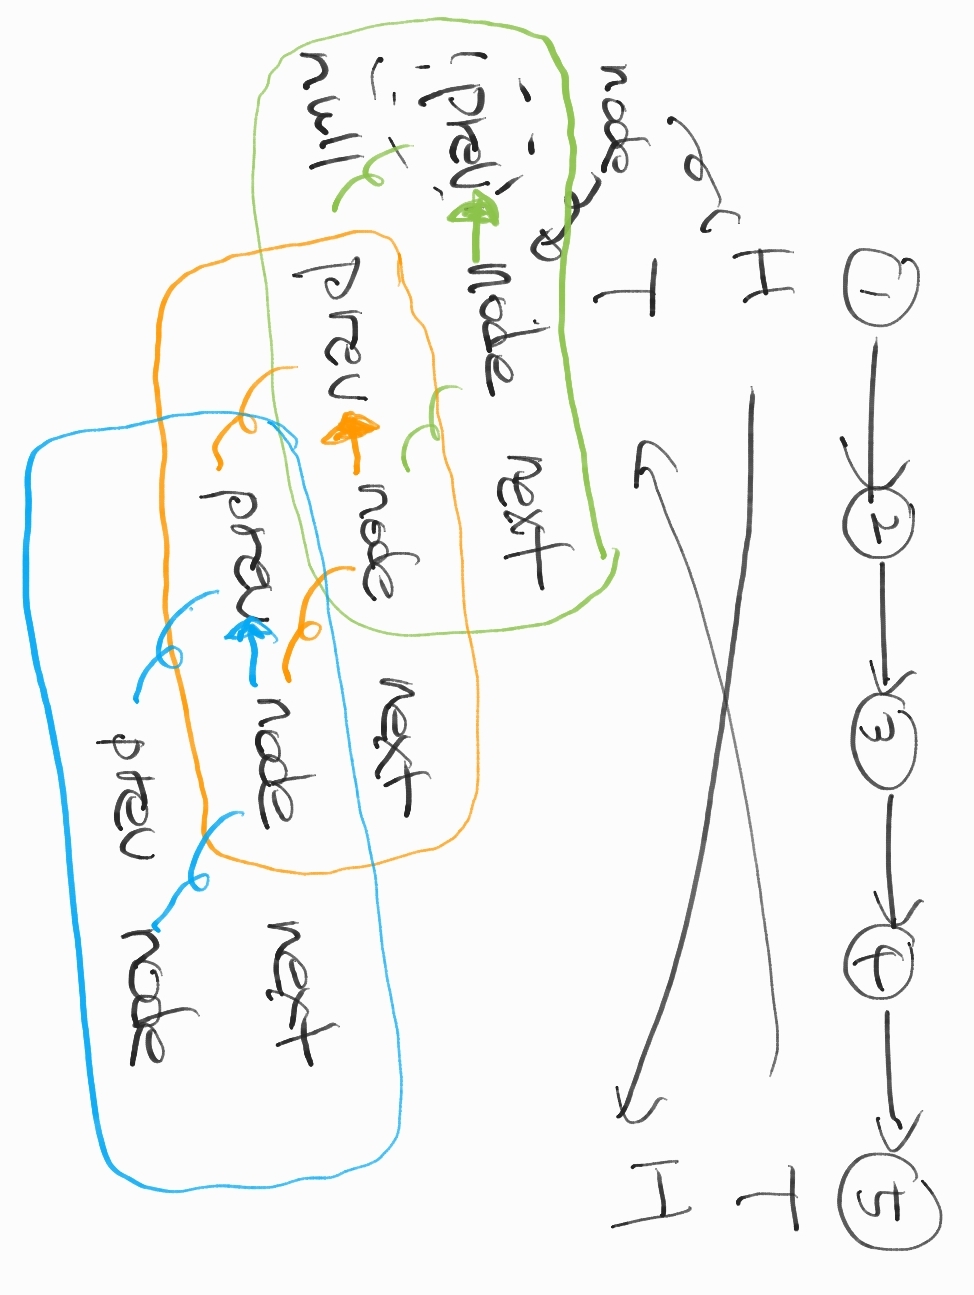 1 2 3 4 5
H T
T H
node
prev node next
null prev node next
prev node next
prev node